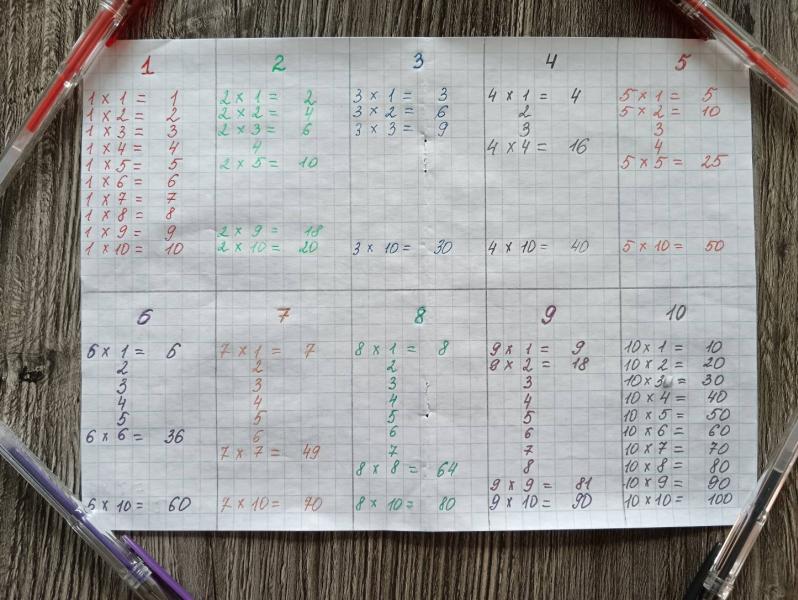 1
1 x 1 = 1
1 x 2 = 2
1 x 3 = 3
1 x 4 = 4
1 x 5 = 5
1 x 6 = 6
1 x 7 = 7
1 x 8 = 8
1 x 9 = 9
1 x 10 = 10
2
2 x 1 = 2
2 x 2 = 4
2 x 3 = 6
4
2 x 5 = 10
2 x 9 = 18
2 x 10 = 20
3
3 x 1 = 3
3 x 2 = 6
3 x 3 = 9
3 x 10 = 30
4
4 x 1 = 4
2
3
4 x 4 = 16
4 x 10 = 40
5
5 x 1 = 5
5 x 2 = 10
3
4
5 x 5 = 25
5 x 10 = 50
6
6 x 1 = 6
2
3
4
5
6 x 6 = 36
6 x 10 = 60
7
7 x 1 = 7
2
3
4
5
6
7 x 7 = 49
7 x 10 = 70
8
8 x 1 = 8
2
3
4
5
6
7
8 x 8 = 64
8 x 10 = 80
9
9 x 1 = 9
9 x 2 = 18
3
4
5
6
7
8
9 x 9 = 81
9 x 10 = 90
10
10 x 1 = 10
10 x 2 = 20
10 x 3 = 30
10 x 4 = 40
10 x 5 = 50
10 x 6 = 60
10 x 7 = 70
10 x 8 = 80
10 x 9 = 90
10 x 10 = 100